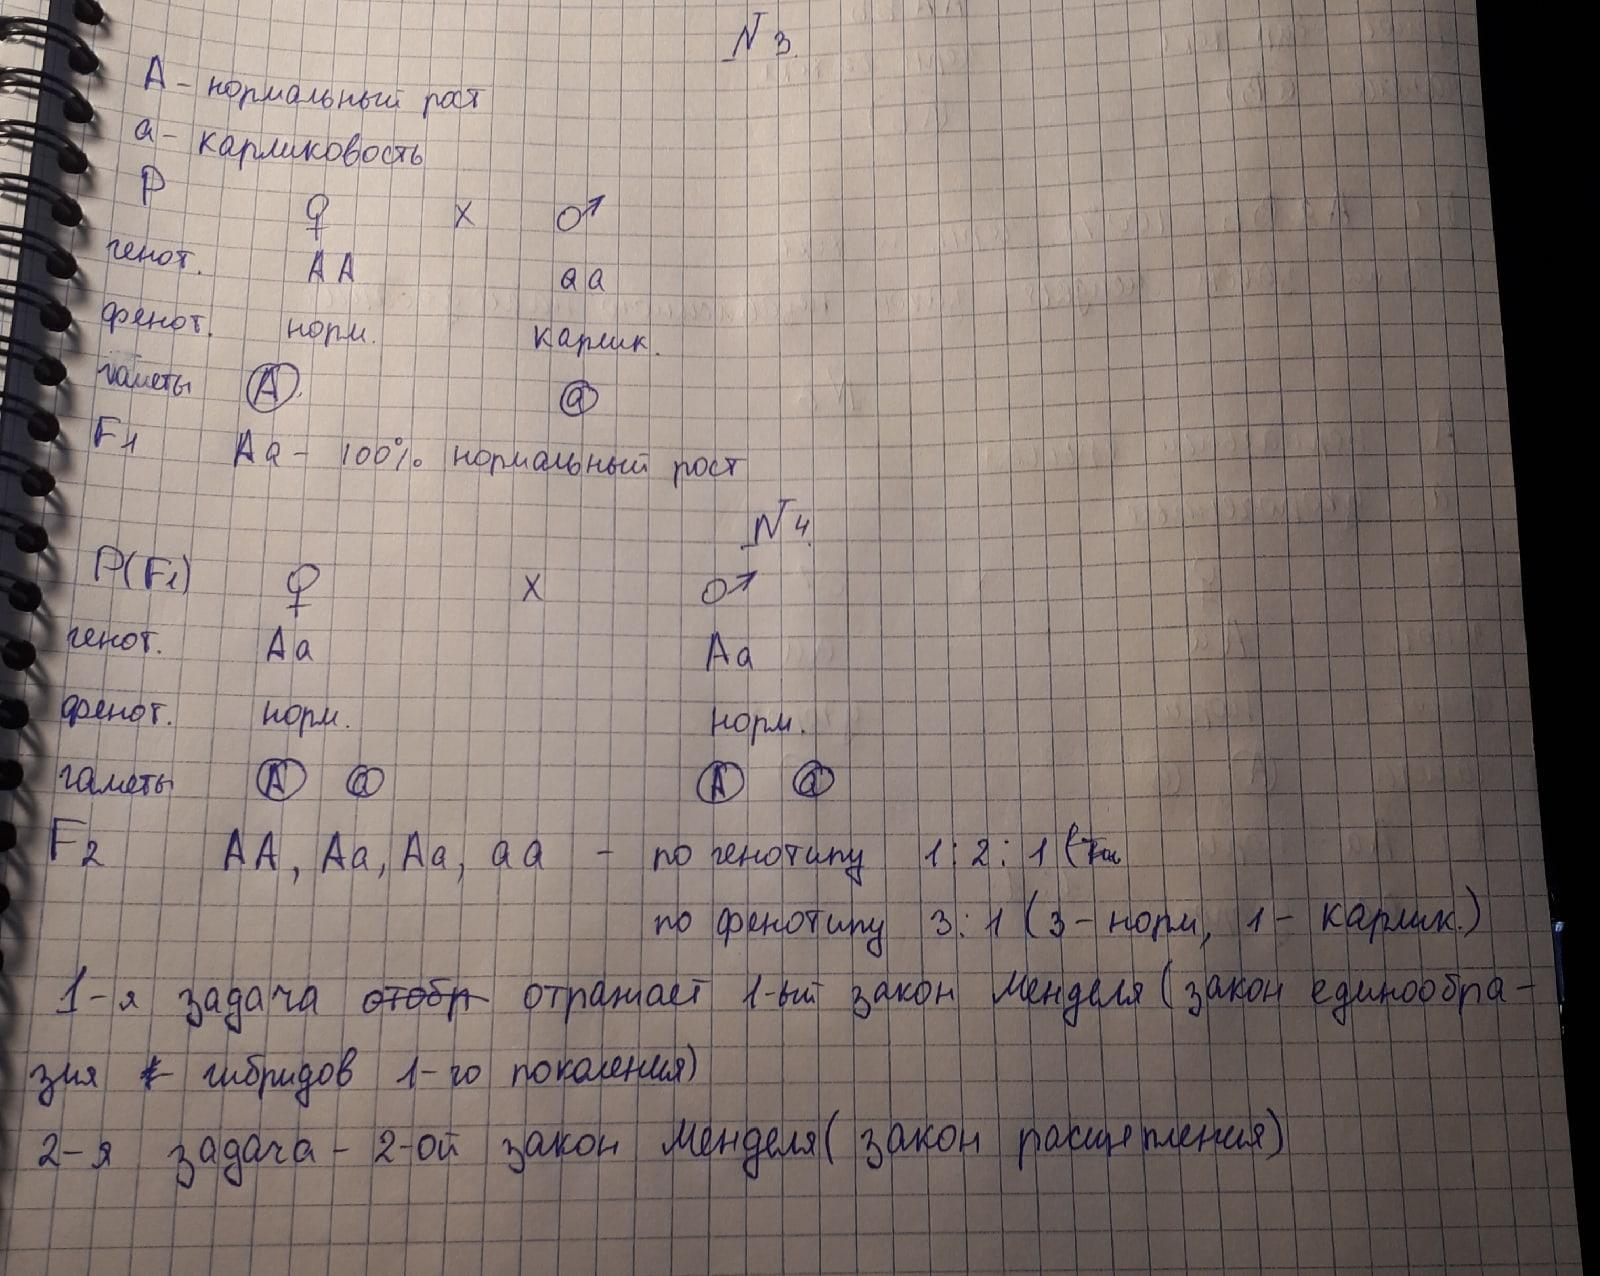 N 3.
A - нормальный рост
a - карликовость
P ♀ x ♂
генот. AA aa
фенот. норм. карлик.
гаметы A. a
F1 Aa - 100% нормальный рост
N 4.
P(F1) ♀ x ♂
генот. Aa Aa
фенот. норм. норм.
гаметы A a A a
F2 AA, Aa, Aa, aa - по генотипу 1:2:1 (
по фенотипу 3:1 (3 - норм, 1 - карлик.)
1-я задача отобр отражает 1-ый закон Менделя (закон единообра-
зия гибридов 1-го поколения)
2-я задача - 2-ой закон Менделя (закон расщепления)